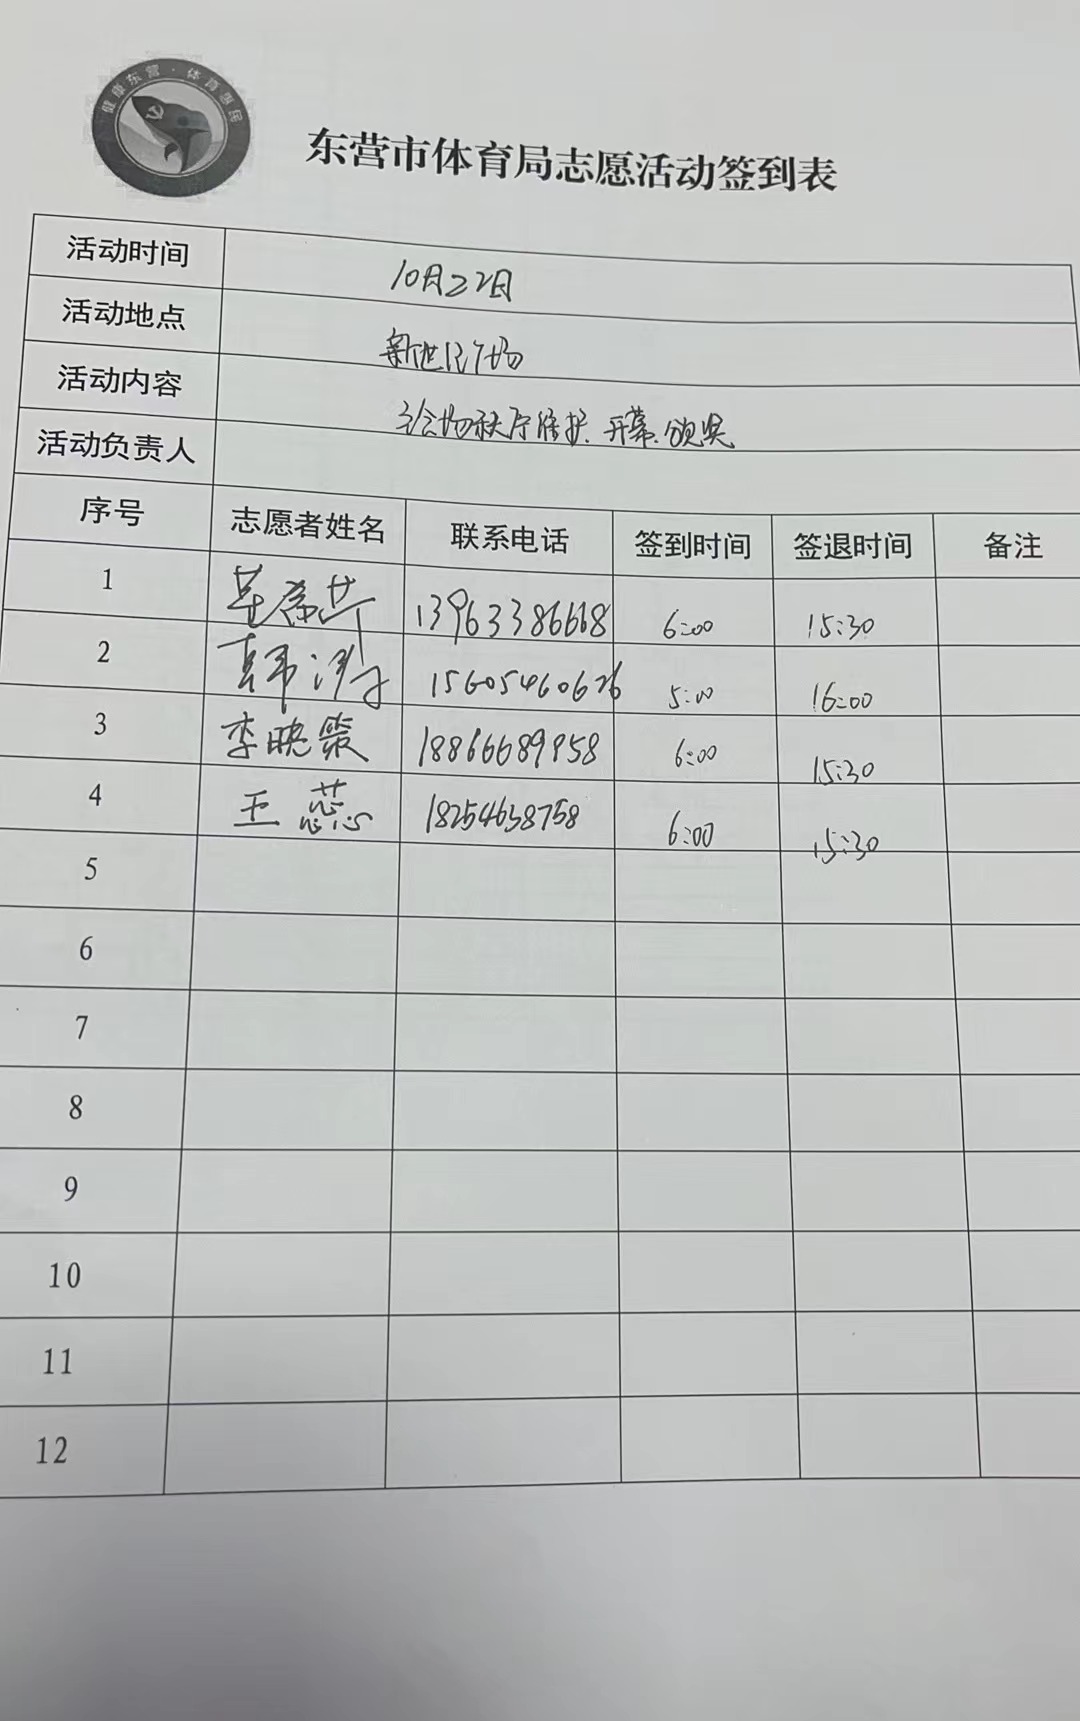 健康东营·体育惠民
东营市体育局志愿活动签到表
活动时间 10月22日
活动地点 新世纪广场
活动内容 主会场秩序维护、开幕、颁奖
活动负责人
序号 志愿者姓名 联系电话 签到时间 签退时间 备注
1 13963386668 6:00 15:30
2 韩 15605460626 5:00 16:00
3 李映策 18866689958 6:00 15:30
4 王蕊 18254638758 6:00 15:30
5
6
7
8
9
10
11
12